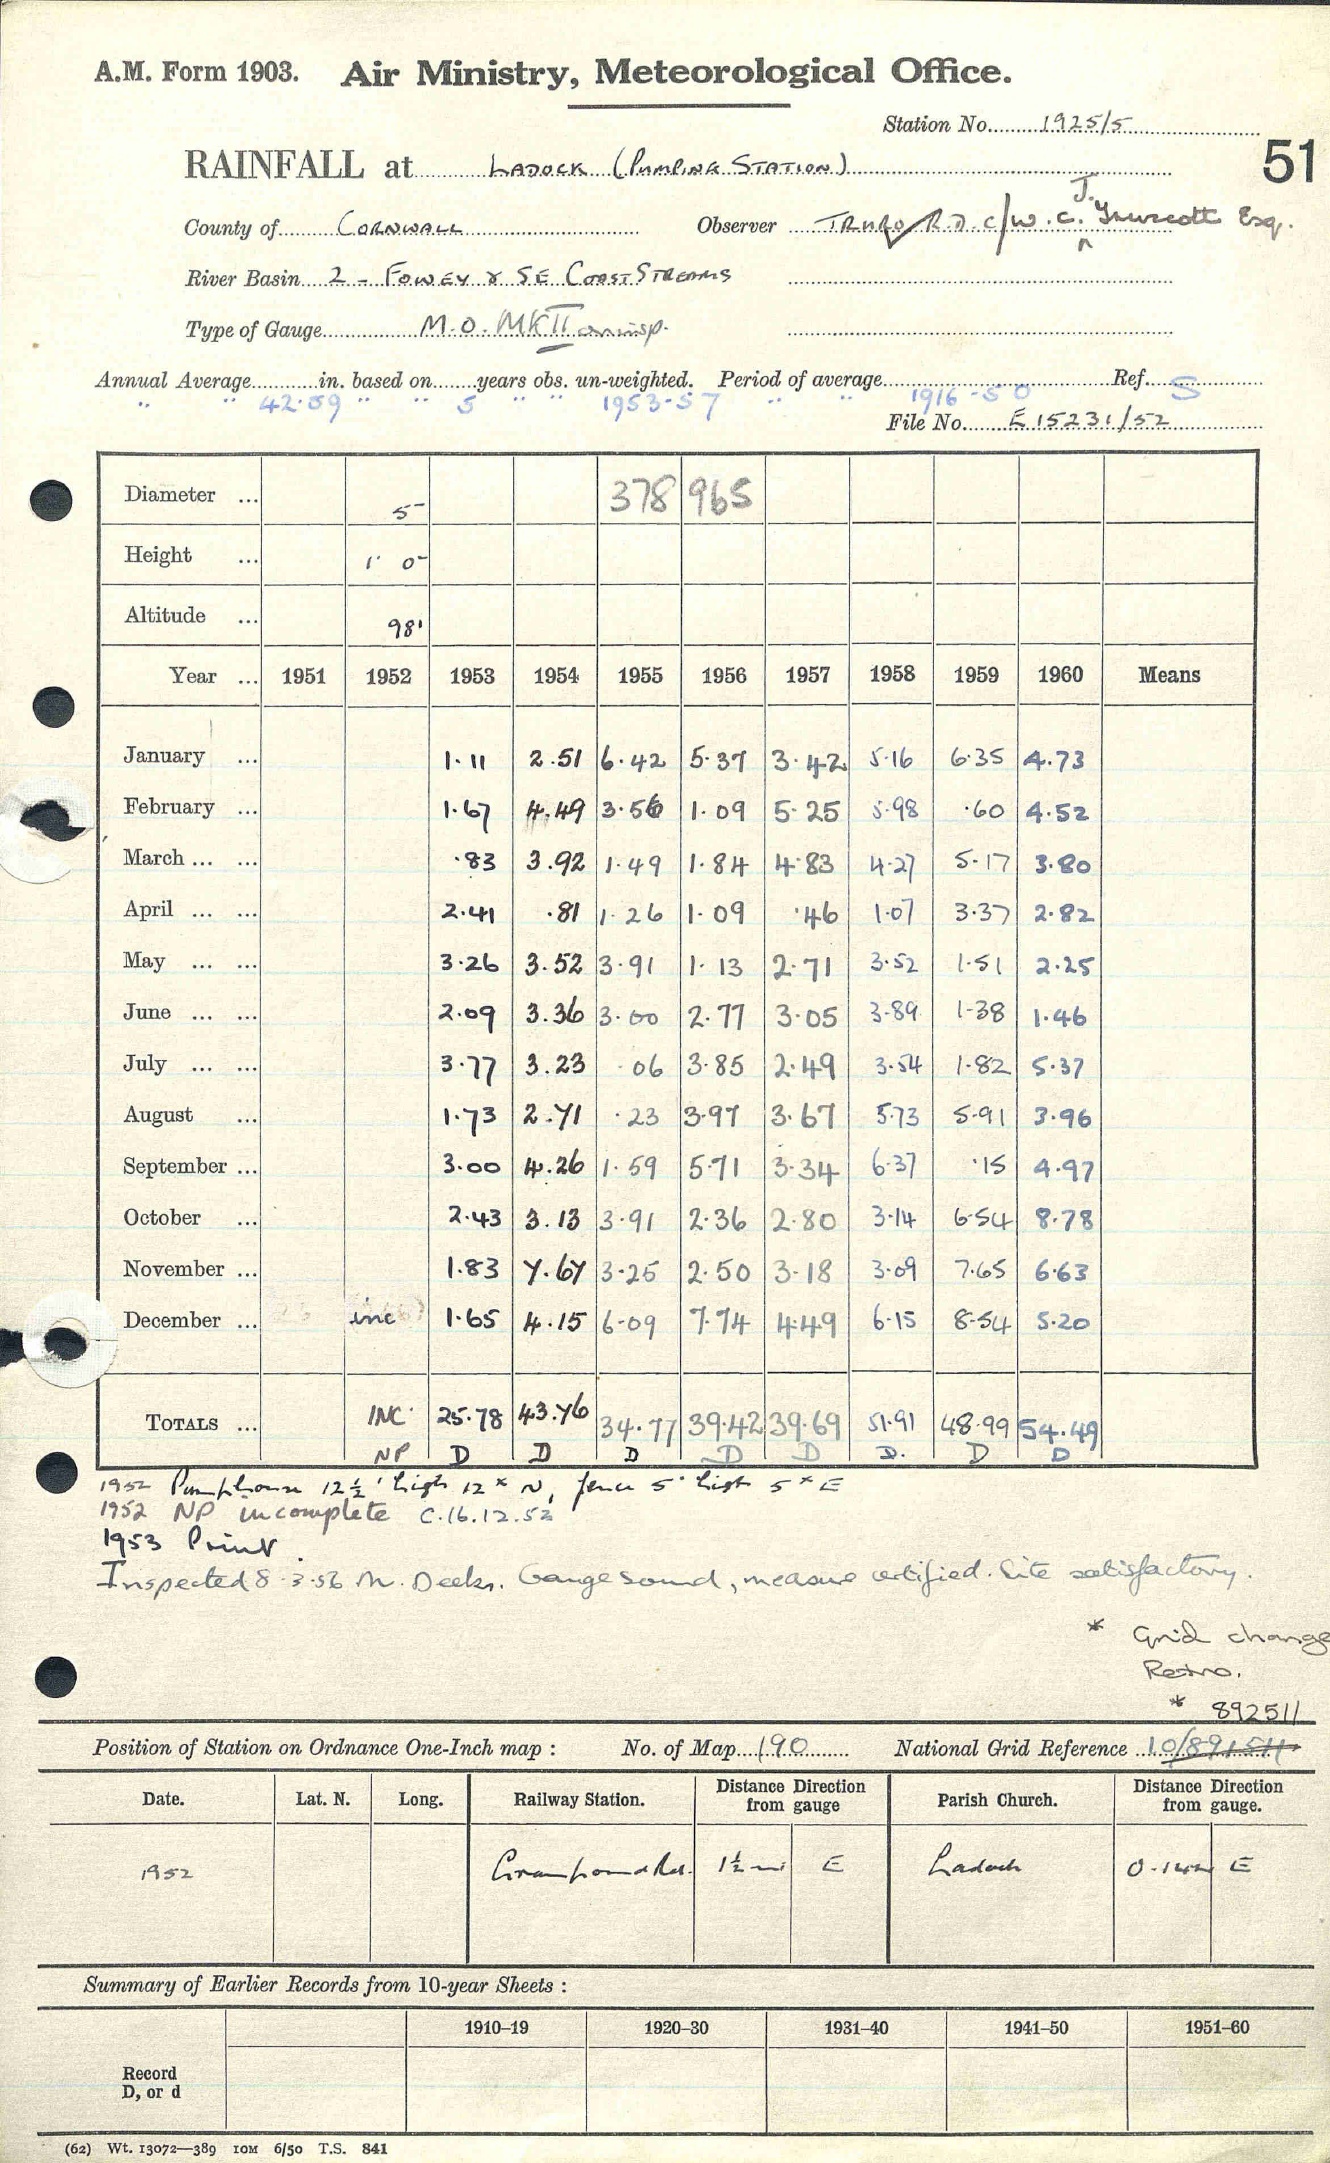 A.M. Form 1903. Air Ministry, Meteorological Office.
Station No. 1925/5
51
RAINFALL at LADOCK (PUMPING STATION)
County of CORNWALL Observer TRURO R.D. c/o W. C. J. Esq.
River Basin 2 - FOWEY & SE COAST STREAMS
Type of Gauge M.O. MKII on insp.
Annual Average in. based on years obs. un-weighted. Period of average Ref. S
" " 42.59 " " 5 " " 1953-57 " " 1916-50
File No. E 15231/52
Diameter ... 5 378 965
Height ... 1' 0"
Altitude ... 98'
Year ... 1951 1952 1953 1954 1955 1956 1957 1958 1959 1960 Means
January ... 1.11 2.51 6.42 5.37 3.42 5.16 6.35 4.73
February ... 1.67 4.49 3.56 1.09 5.25 5.98 .60 4.52
March ... ... .83 3.92 1.49 1.84 4.83 4.27 5.17 3.80
April ... ... 2.41 .81 1.26 1.09 .46 1.07 3.37 2.82
May ... ... 3.26 3.52 3.91 1.13 2.71 3.52 1.51 2.25
June ... ... 2.09 3.36 3.00 2.77 3.05 3.89 1.38 1.46
July ... ... 3.77 3.23 .06 3.85 2.49 3.54 1.82 5.37
August ... 1.73 2.71 .23 3.97 3.67 5.73 5.91 3.96
September ... 3.00 4.26 1.59 5.71 3.34 6.37 .15 4.97
October ... 2.43 3.13 3.91 2.36 2.80 3.14 6.54 8.78
November ... 1.83 7.67 3.25 2.50 3.18 3.09 7.65 6.63
December ... inc 1.65 4.15 6.09 7.74 4.49 6.15 8.54 5.20
TOTALS ... INC. 25.78 43.76 34.77 39.42 39.69 51.91 48.99 54.49
NP D D D D D D. D D
1952 Pumphouse 12½' high 12 x N, fence 5' high 5 x E
1952 NP incomplete C.16.12.52
1953 Print
Inspected 8.3.56 M. Deeks. Gauge sound, measure certified. Site satisfactory.
* Grid change
Retro.
* 892511
Position of Station on Ordnance One-Inch map : No. of Map 190 National Grid Reference 10/891511
Date. Lat. N. Long. Railway Station. Distance Direction from gauge Parish Church. Distance Direction from gauge.
1952 Grampound Rd. 1½ mi E Ladock E
Summary of Earlier Records from 10-year Sheets :
1910–19 1920–30 1931–40 1941–50 1951–60
Record
D, or d
(62) Wt. 13072—389 10M 6/50 T.S. 841